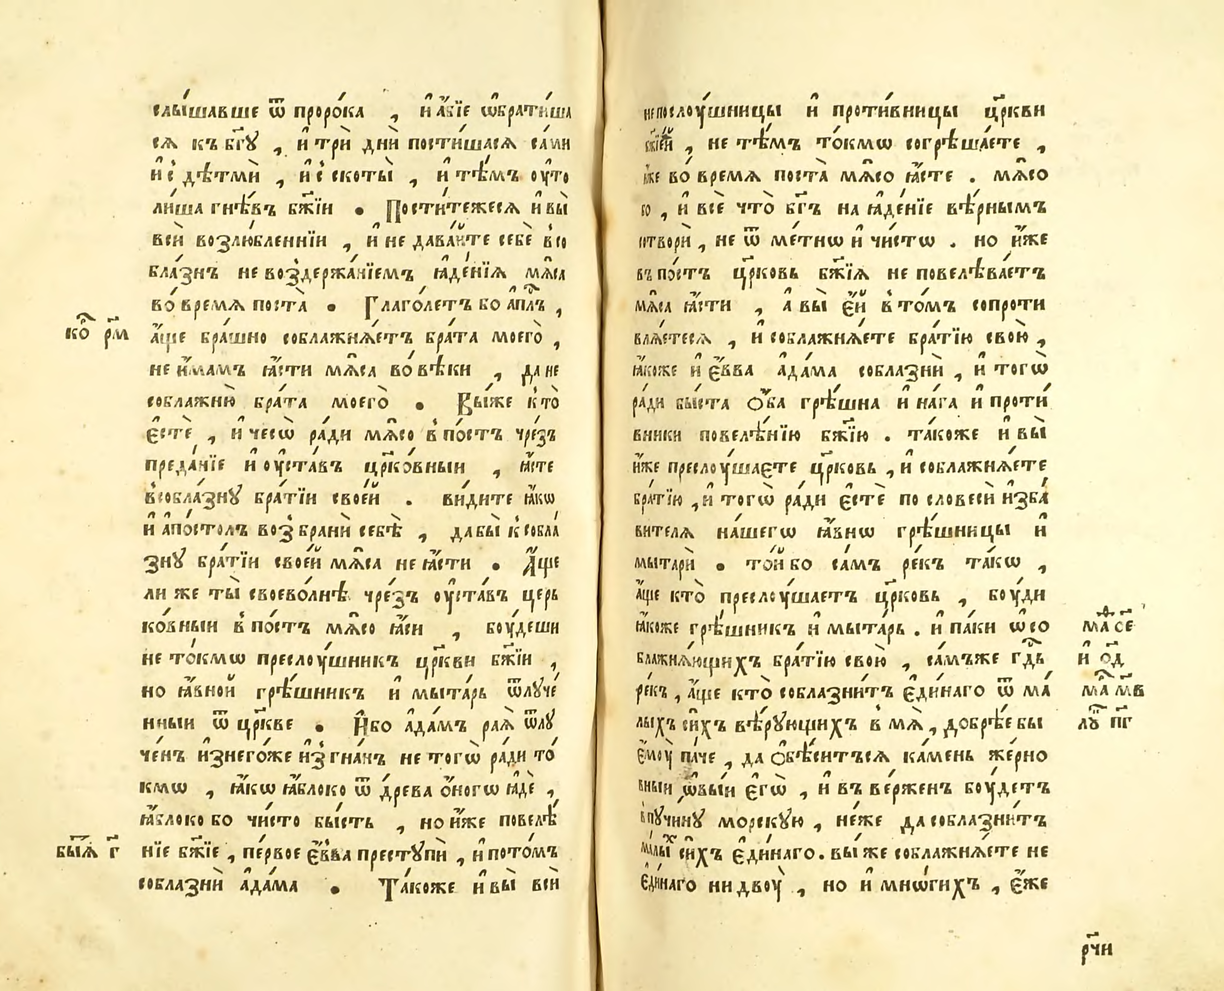 слы́шавше ѿ проро́ка , и҆ а҆́бїе ѡ҆брати́ша
сѧ къ бг҃ꙋ , и҆ трѝ днѝ пости́шасѧ са́ми
и҆ с̾ дѣтмѝ , и҆ с̾ скоты̀ , и҆ тѣ́мъ оу҆то
лиша гнѣ́въ бж҃їи • Пости́тежесѧ и҆ вы̀
всѝ возлю́бленнїи , и҆ не дава́йте себѐ в̾со
бла́знъ не воздержа́нїемъ ꙗ҆де́нїѧ мѧ́са
во́ времѧ поста̀ • Глаго́летъ бо а҆пл҃ъ ,
ко҃ рм҃
а҆́ще бра́шно соблажнѧ́етъ бра́та моего̀ ,
не и҆́мамъ ꙗ҆́сти мѧ́са во́ вѣки , да не
соблажню̀ бра́та моего̀ • Вы́же кто̀
є҆стѐ , и҆ чесѡ̀ ра́ди мѧ́со в̾ по́стъ чре́зъ
преда́нїе и҆ оу҆ста́въ цр҃ко́вныи , ꙗ҆́сте
в̾собла́знꙋ бра́тїи свое́й . ви́дите ꙗ҆́кѡ
и҆ а҆по́столъ возбранѝ себѣ̀ , дабы̀ к̾ собла
знꙋ̀ бра́тїи свое́й мѧ́са не ꙗ҆́сти • А҆́ще
ли же ты̀ своево́лнѣ чре́зъ оу҆ста́въ церь
ко́вныи в̾ по́стъ мѧ́со ꙗ҆́си , боу́деши
не то́кмѡ преслоу́шникъ цр҃кви бж҃їи ,
но ꙗ҆́вной грѣ́шникъ и҆ мыта́рь ѿлꙋче́
нныи ѿ цр҃кве • И҆́бо а҆да́мъ раѧ̀ ѿлꙋ
че́нъ и҆знего́же и҆згна́нъ не тогѡ̀ ра́ди то́
кмѡ , ꙗ҆́кѡ ꙗ҆́блоко ѿ дре́ва ѻ҆́ногѡ ꙗ҆дѐ ,
ꙗ҆́блоко бо чи́сто бы́сть , но и҆́же повелѣ́
бы҃їѧ г҃
нїе бж҃їе , пе́рвое є҆́ѵва престꙋпѝ , и҆ пото́мъ
соблазнѝ а҆да́ма • Та́коже и҆ вы̀ всѝ
непослоу́шницы и҆ проти́вницы цр҃кви
бж҃їей , не тѣ́мъ то́кмѡ согрѣша́ете ,
и҆́же во́ времѧ поста̀ мѧ́со ꙗ҆́сте . мѧ́со
бо , и҆ всѐ что̀ бг҃ъ на ꙗ҆де́нїе вѣ́рнымъ
сотворѝ , не ѿ ме́тнѡ и҆ чи́стѡ . но и҆́же
въ по́стъ цр҃ковь бж҃їѧ не повелѣва́етъ
мѧ́са ꙗ҆́сти , а҆ вы̀ є҆́й в̾ то́мъ сопроти
влѧ́етесѧ , и҆ соблажнѧ́ете бра́тїю свою̀ ,
ꙗ҆́коже и҆ є҆́ѵва а҆да́ма соблазнѝ , и҆ тогѡ̀
ра́ди бы́ста ѻ҆́ба грѣ́шна и҆ на́га и҆ проти́
вники повелѣ́нїю бж҃їю . та́коже и҆ вы̀
и҆́же преслоу́шаєте цр҃ковь , и҆ соблажнѧ́ете
бра́тїю , и҆ тогѡ̀ ра́ди є҆стѐ по словесѝ и҆зба́
вителѧ на́шегѡ ꙗ҆́внѡ грѣ́шницы и҆
мытарѝ • то́й бо са́мъ ре́къ та́кѡ ,
а҆́ще кто̀ преслоу́шаетъ цр҃ковь , боу́ди
ꙗ҆́коже грѣ́шникъ и҆ мыта́рь . и҆ па́ки ѡ҆ со
блажнѧ́ющихъ бра́тїю свою̀ , са́мъже гд҃ь
ре́къ , а҆́ще кто̀ соблазни́тъ є҆ди́наго ѿ ма́
лыхъ си́хъ вѣ́рꙋющихъ в̾ мѧ̀ , добрѣ́е бы
є҆моу̀ па́че , да ѻ҆бѣ́ситъсѧ ка́мень же́рно
вныи ѡ҆ вы́и є҆гѡ̀ , и҆ въ ве́рженъ боу́детъ
в̾пꙋчи́нꙋ морскꙋ́ю , не́же да соблазни́тъ
ма́лых си́хъ є҆ди́наго . вы́ же соблажнѧ́ете не
є҆ди́наго ни двоу̀ , но и҆ мно́гихъ , є҆́же
ма с҃е
и҆ ѻ҃д
ма м҃в
лꙋ п҃г
рч҃и